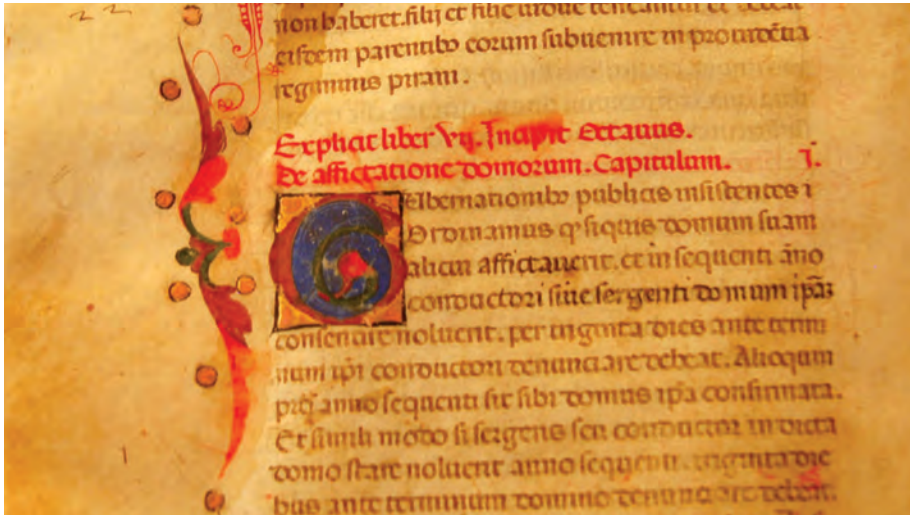 non haberet. filij et filie
eisdem parentibꝰ eorum subuenire in prouidẽtia
regiminis pirani.
Explicit liber Vij. Incipit Octauus.
De affictatione domorum. Capitulum. I.
publicis insistentes
Ordinamus ꝙ siquis domum suam
alicui affictauerit. et in sequenti ãno
conductori siue sergenti domum ip̃az
noluerit. per triginta dies ante termi
num ip̃i conductori denunciare debeat. Alioquin
anno sequenti sit sibi domus ip̃a confirmata.
Et simili modo si sergens seu conductor in dicta
domo stare noluerit anno sequenti. triginta die
bus ante terminum domino denunciare debeat.